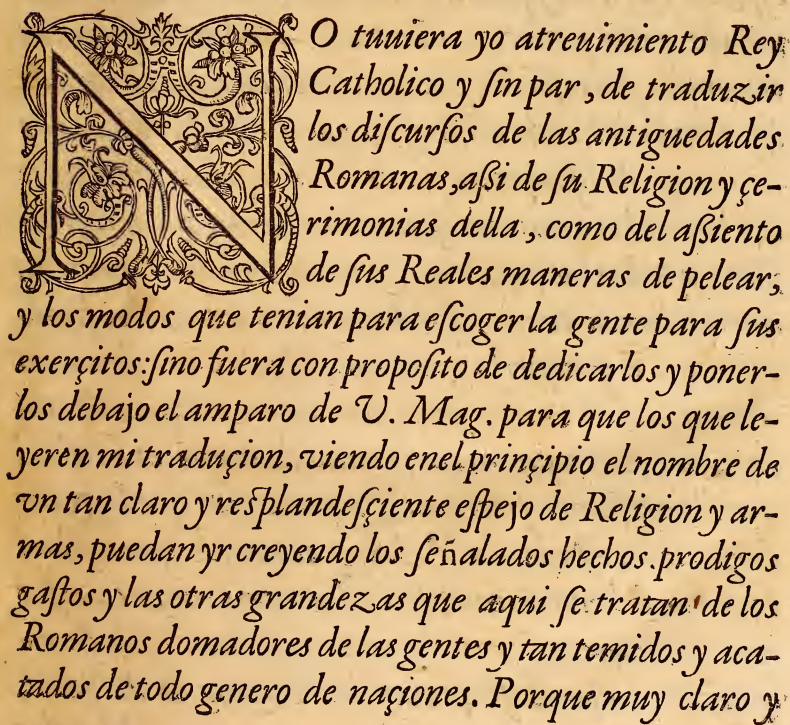 NO tuuiera yo atreuimiento Rey
Catholico y ſin par, de traduzir
los diſcurſos de las antiguedades
Romanas, aßi de ſu Religion y çe-
rimonias della, como del aßiento
de ſus Reales maneras de pelear,
y los modos que tenian para eſcoger la gente para ſus
exerçitos: ſino fuera con propoſito de dedicarlos y poner-
los debajo el amparo de V. Mag. para que los que le-
yeren mi traduçion, viendo enel prinçipio el nombre de
vn tan claro y reſplandeſçiente eſpejo de Religion y ar-
mas, puedan yr creyendo los ſeñalados hechos. prodigos
gaſtos y las otras grandezas que aqui ſe tratan de los
Romanos domadores de las gentes y tan temidos y aca-
tados de todo genero de naçiones. Porque muy claro y